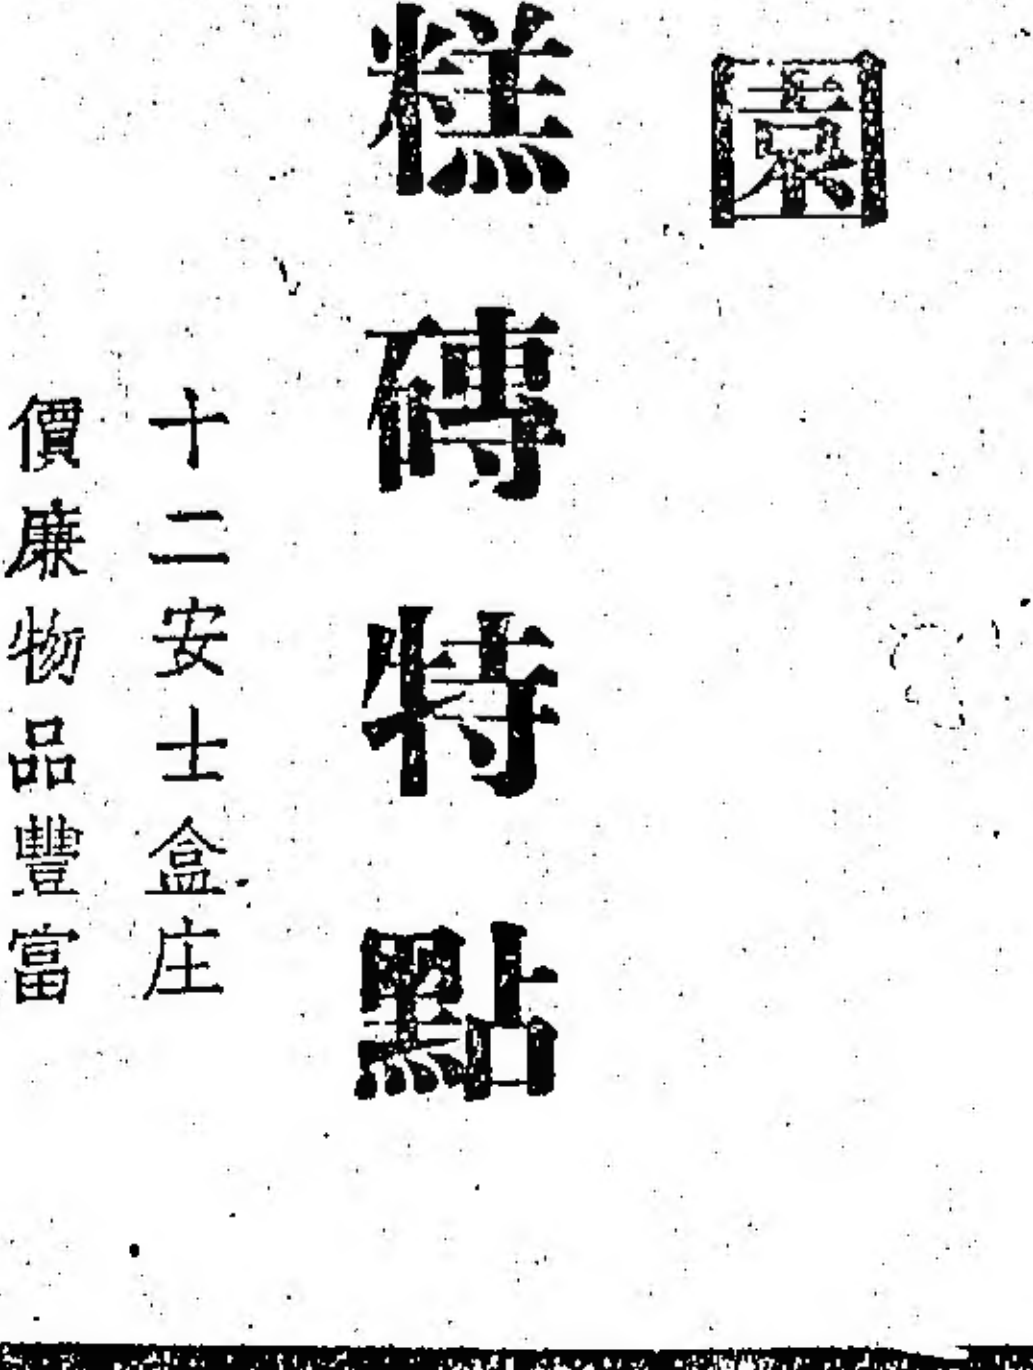 園
糕磚特點
十二安士盒庄
價廉物品豐富